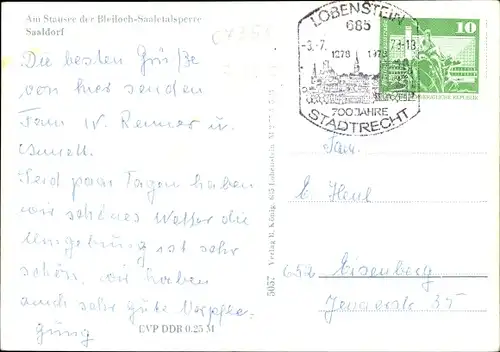 Am Stausee der Bleiloch-Saaletalsperre
Saaldorf
Die besten Grüße
von hier senden
Fam W. Renner u.
Seid paar Tagen haben
wir schönes Wetter die
Umgebung ist sehr
schön, wir haben
auch sehr gute Verpfle-
gung
EVP DDB 0.25 M
5057 Verlag R. König, 685 Lobenstein
LOBENSTEIN
685
-3.-7. 1278 1978 78-18
700 JAHRE
STADTRECHT
10
DEMOKRATISCHE REPUBLIK
Fam.
E. Heul
652 Eisenberg
Jenaerstr 35